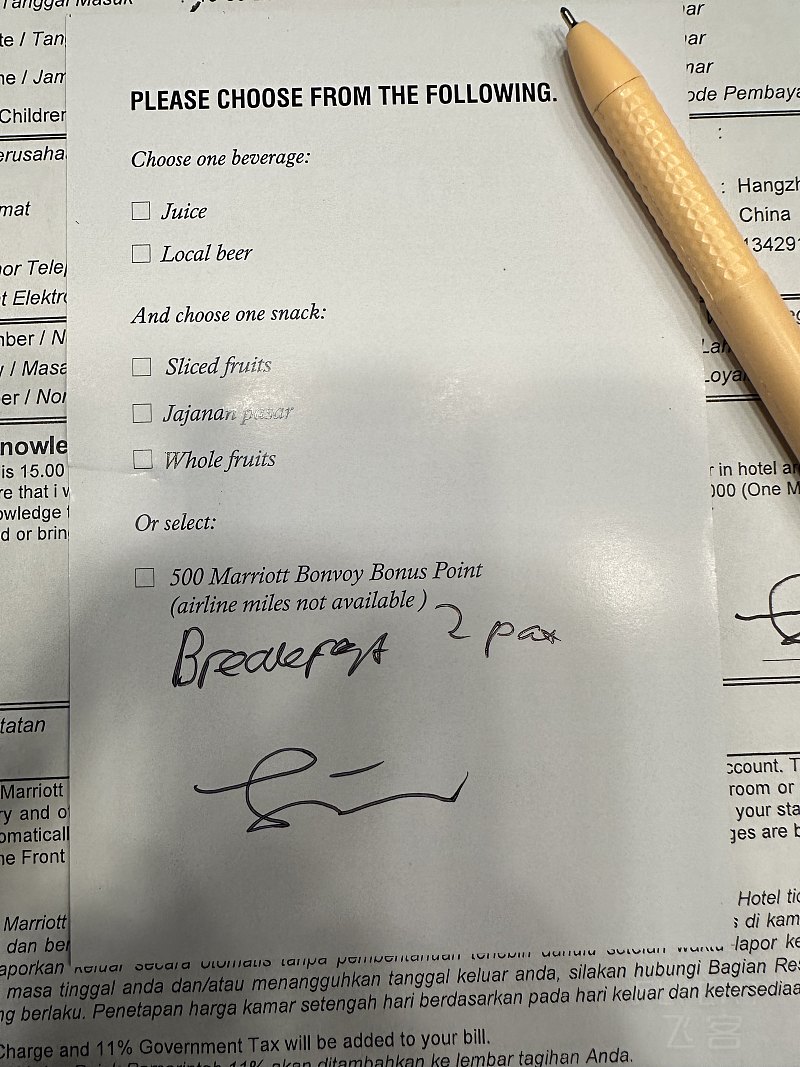 Tanggal Masuk
te / Tan
ne / Jam
Children
erusaha
mat
or Telep
t Elektro
mber / N
y / Masa
er / Nor
nowle
is 15.00
re that i w
owledge
d or brin
tatan
Marriott
ry and o
omaticall
he Front
Marriott
dan ber
PLEASE CHOOSE FROM THE FOLLOWING.
Choose one beverage:
Juice
Local beer
And choose one snack:
Sliced fruits
Jajanan pasar
Whole fruits
Or select:
500 Marriott Bonvoy Bonus Point
(airline miles not available )
Breakfast 2 pax
ar
ar
mar
ode Pembaya
:
: Hangzh
China
13429
Lan
Loyal
r in hotel ar
000 (One M
ccount. T
room or
your sta
ges are b
Hotel tid
s di kam
lapor ke
aporkan keluar secara otomatis tanpa pemberitahuan terlebih dahulu setelah waktu
masa tinggal anda dan/atau menangguhkan tanggal keluar anda, silakan hubungi Bagian Res
ng berlaku. Penetapan harga kamar setengah hari berdasarkan pada hari keluar dan ketersediaa
Charge and 11% Government Tax will be added to your bill.
11% akan ditambahkan ke lembar tagihan Anda.
飞客